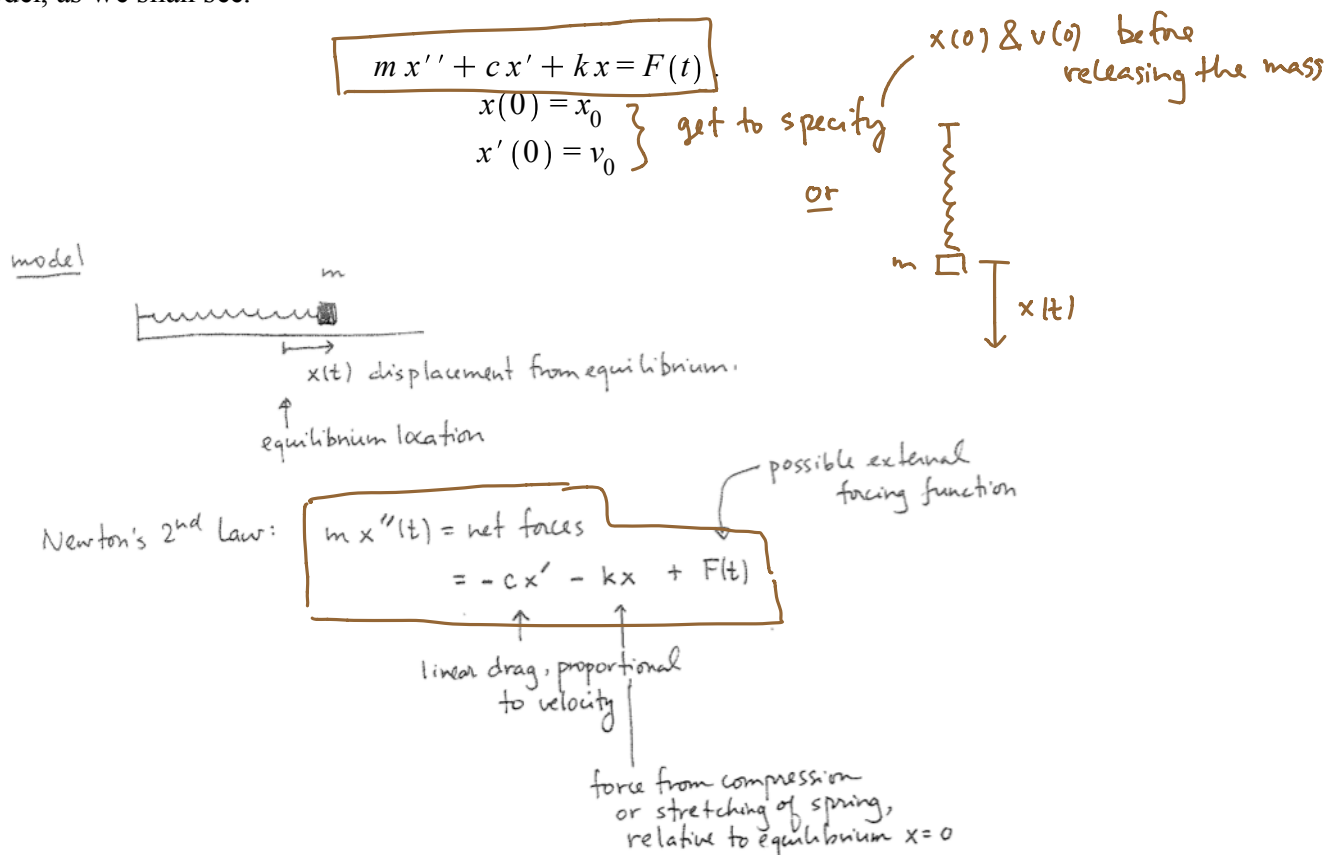 del, as we shall see.
m x'' + c x' + k x = F(t).
x(0) = x₀
x'(0) = v₀
} get to specify
x(0) & v(0) before
releasing the mass
or
m
x(t)
model
m
x(t) displacement from equilibrium.
equilibrium location
possible external
forcing function
Newton's 2nd Law:
m x''(t) = net forces
= - c x' - kx + F(t)
linear drag, proportional
to velocity
force from compression
or stretching of spring,
relative to equilibrium x=0